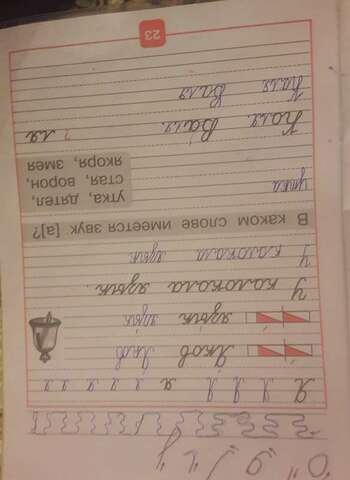 Я Я Я Я Я я я я я я
Яков Яков
язык язык
У колокола язык.
У колокола язык
В каком слове имеется звук [а]?
утка, дятел,
стая, ворон,
якоря, змея
утка
Коля Валя. ? ля
Коля Валя
23